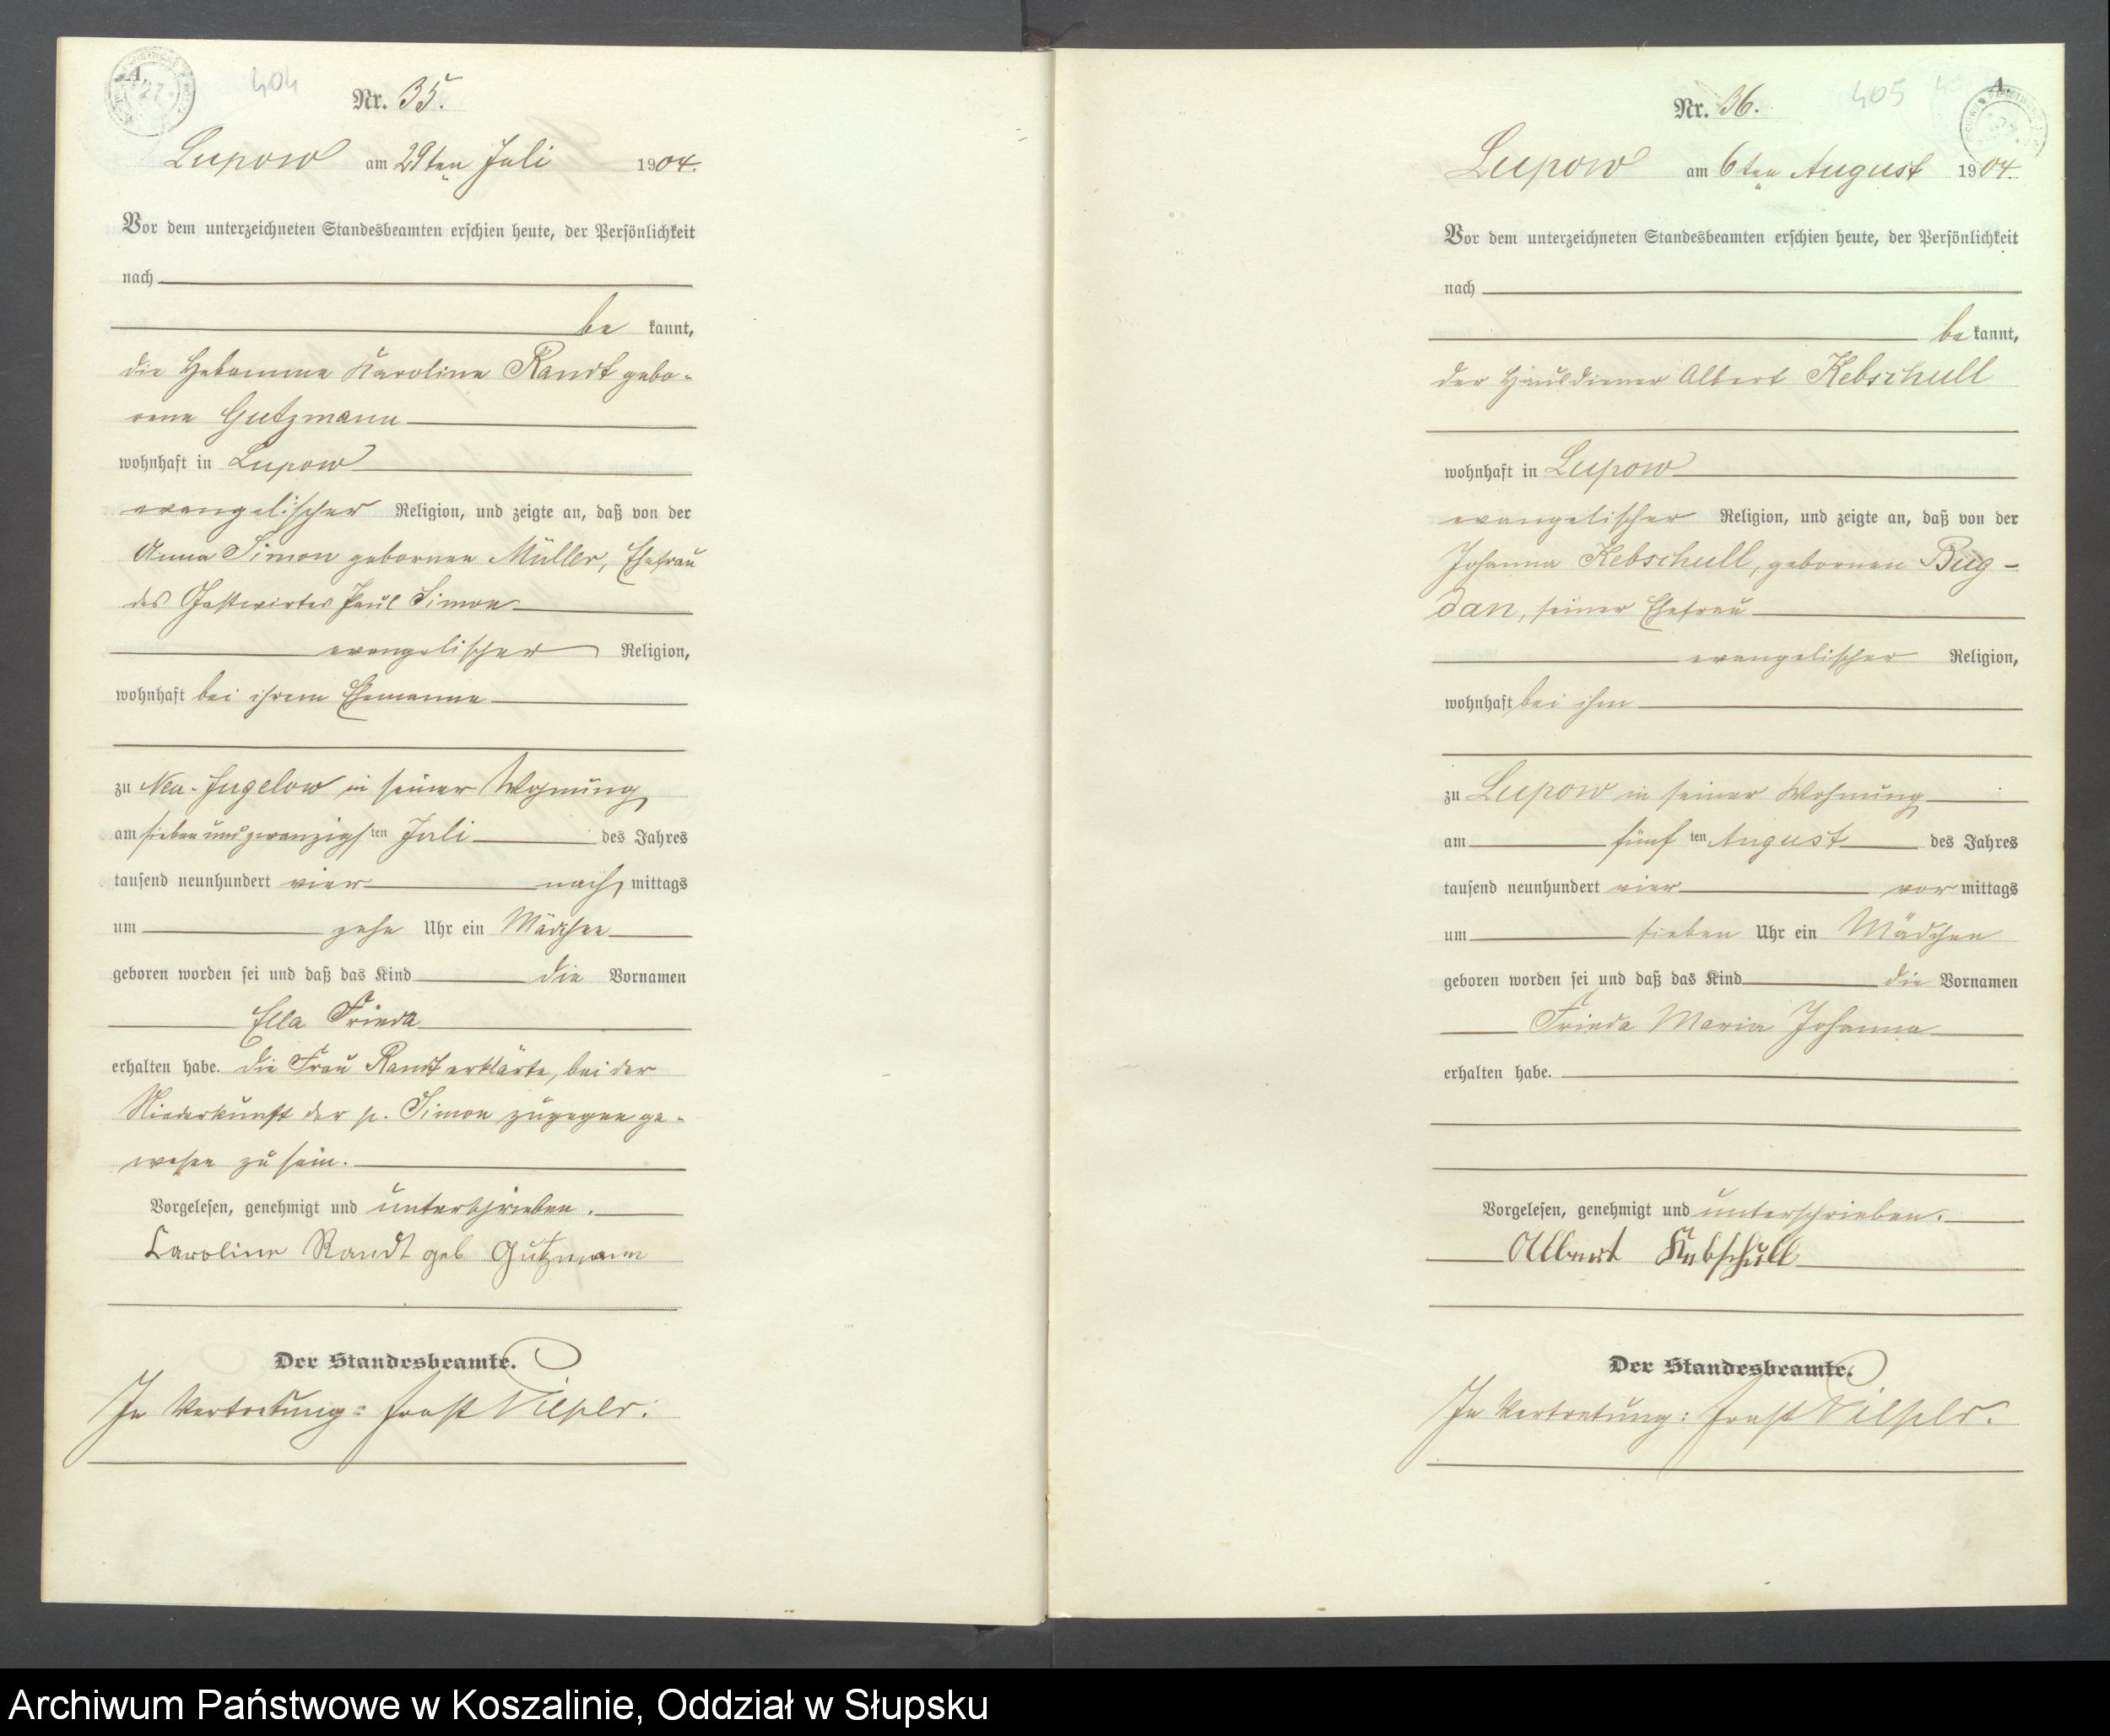 A.
404
Nr. 35.
Lupow am 29ten Juli 1904.
Vor dem unterzeichneten Standesbeamten erschien heute, der Persönlichkeit
nach
be kannt,
die Hebamme Karoline Randt gebo-
rene Gutzmann
wohnhaft in Lupow
evangelischer Religion, und zeigte an, daß von der
Anna Simon gebornen Müller, Ehefrau
des Gastwirtes Paul Simon
evangelischer Religion,
wohnhaft bei ihrem Ehemanne
zu Neu-Jugelow in seiner Wohnung
am sieben und zwanzigsten Juli des Jahres
tausend neunhundert vier nach mittags
um zehn Uhr ein Mädchen
geboren worden sei und daß das Kind die Vornamen
Ella Frieda
erhalten habe. Die Frau Randt erklärte, bei der
Niederkunft der p. Simon zugegen ge-
wesen zu sein.
Vorgelesen, genehmigt und unterschrieben.
Caroline Randt geb Gutzmann
Der Standesbeamte.
In Vertretung:
A.
405
Nr. 36.
Lupow am 6ten August 1904.
Vor dem unterzeichneten Standesbeamten erschien heute, der Persönlichkeit
nach
be kannt,
der Hausdiener Albert Kebschull
wohnhaft in Lupow
evangelischer Religion, und zeigte an, daß von der
Johanna Kebschull, gebornen Bug-
dan, seiner Ehefrau
evangelischer Religion,
wohnhaft bei ihm
zu Lupow in seiner Wohnung
am fünf ten August des Jahres
tausend neunhundert vier vor mittags
um sieben Uhr ein Mädchen
geboren worden sei und daß das Kind die Vornamen
Frieda Maria Johanna
erhalten habe.
Vorgelesen, genehmigt und unterschrieben.
Albert Kebschull
Der Standesbeamte.
In Vertretung:
Archiwum Państwowe w Koszalinie, Oddział w Słupsku